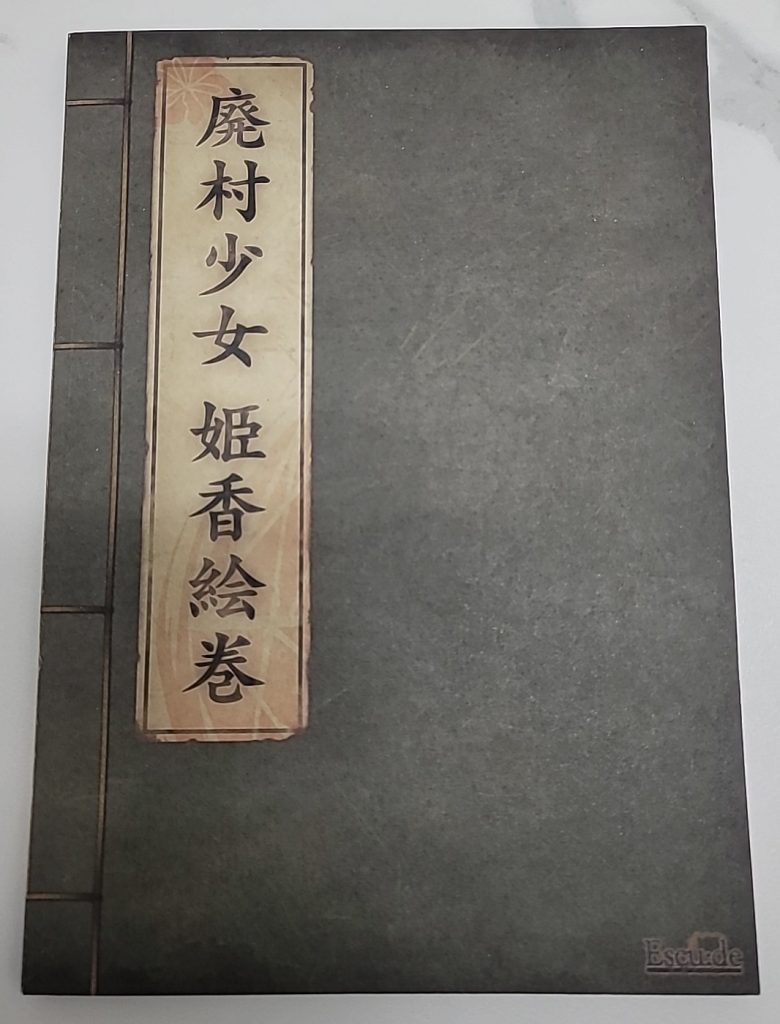 廃村少女 姫香絵巻
Escu:de